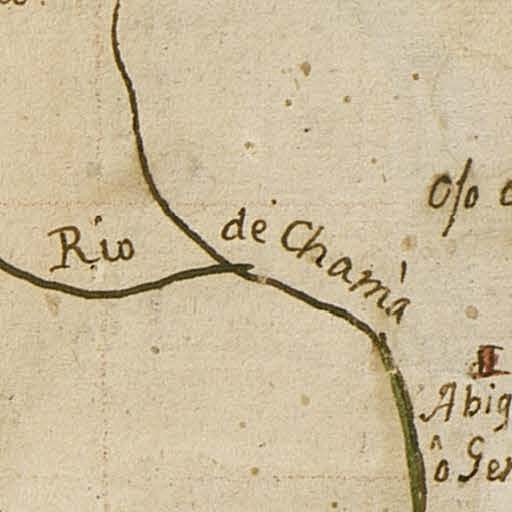 Rio de Chamà
Ojo
Abig
ô Gen